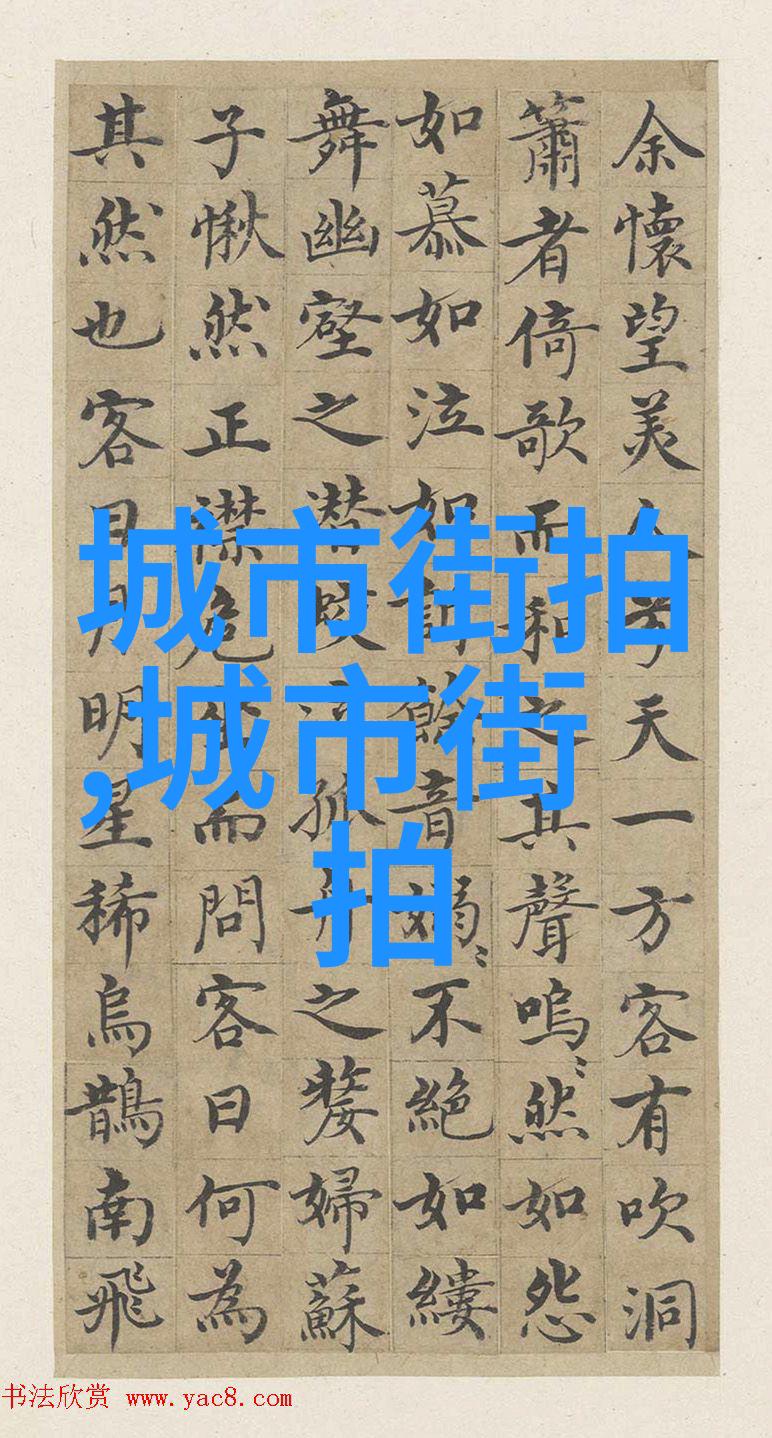 余懷望美人兮天一方客有吹洞
簫者倚歌而和之其聲嗚〻然如怨
如慕如泣如訴餘音嫋〻不絕如縷
舞幽壑之潛蛟泣孤舟之嫠婦蘇
子愀然正襟危坐而問客曰何為
其然也客曰月明星稀烏鵲南飛
城市街拍
,城市街
拍
书法欣赏 www.yac8.com